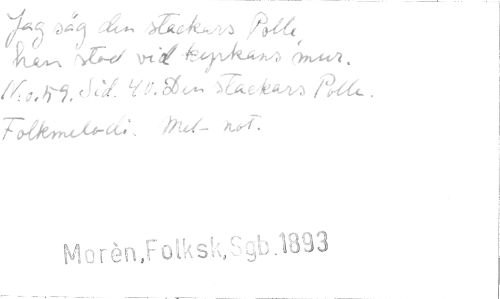 Jag såg den stackars Polle,
han stod vid kyrkans mur.
No. 59. Sid. 40. Den stackars Polle.
Folkmelodi. Mel- not.
Morèn,Folksk,Sgb.1893